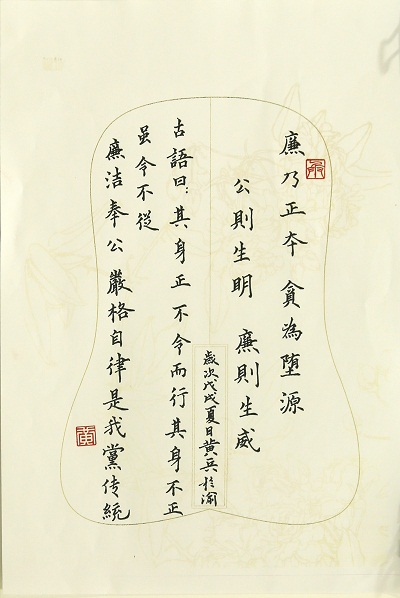 廉乃正本 貪為堕源
公則生明 廉則生威
古語曰:其身正不令而行其身不正
虽令不從
廉洁奉公嚴格自律是我黨传統
歲次戊戌夏日黄兵於渝